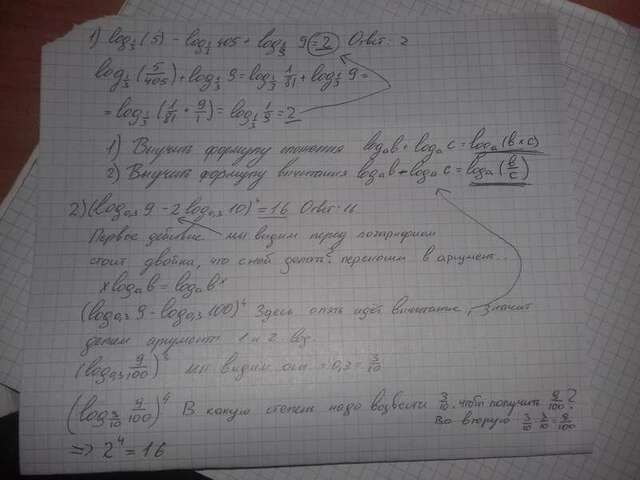 1) log₃(5) - log₃ 405 + log₃ 9 = 2 Ответ: 2
log₃(5/405) + log₃ 9 = log₃ 1/81 + log₃ 9 =
= log₃(1/81 * 9/1) = log₃ 1/9 = 2
1) Выучить формулу сложения logₐb + logₐc = logₐ(b×c)
2) Выучить формулу вычитания logₐb - logₐc = logₐ(b/c)
2) (log₀,₃ 9 - 2log₀,₃ 10)⁴ = 16 Ответ: 16
Первое действие: мы видим перед логарифмом
стоит двойка, что с ней делать? переносим в аргумент.
xlogₐb = logₐbˣ
(log₀,₃ 9 - log₀,₃ 100)⁴ Здесь опять идёт вычитание, значит
делим аргументы
(log₀,₃ 9/100)⁴ мы видим 0,3 = 3/10
(log 3/10 9/100)⁴ В какую степень надо возвести 3/10, чтоб получить 9/100?
Во вторую 3/10 · 3/10 = 9/100
=> 2⁴ = 16